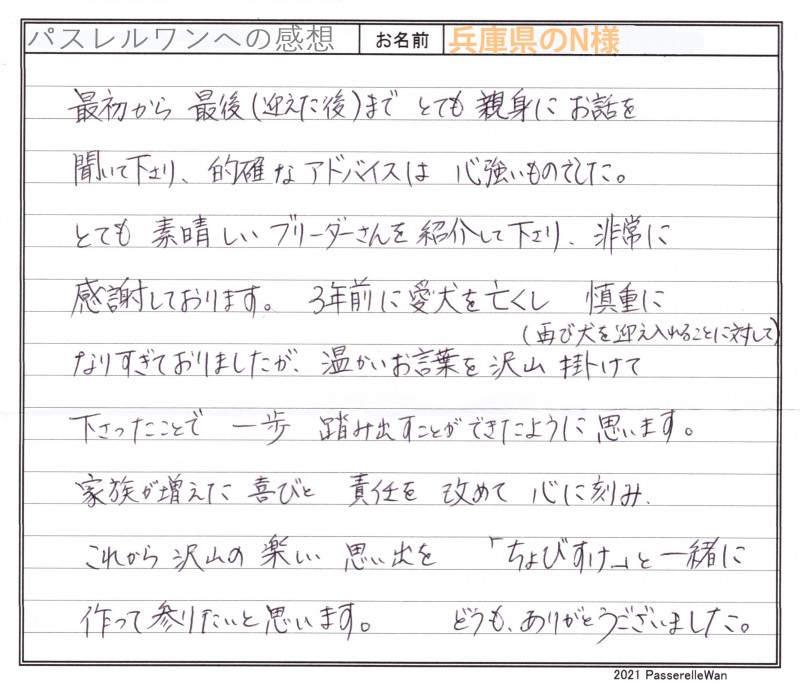 パスレルワンへの感想 お名前 兵庫県のN様
最初から 最後(迎えた後)まで とても 親身に お話を
聞いて下さり、的確な アドバイスは 心強いものでした。
とても 素晴しい ブリーダーさんを 紹介して下さり、非常に
感謝しております。 3年前に愛犬を亡くし 慎重に
(再び犬を迎え入れることに対して)
なりすぎておりましたが、温かいお言葉を 沢山 掛けて
下さったことで 一歩 踏み出すことができたように 思います。
家族が増えた 喜びと 責任を 改めて 心に刻み、
これから 沢山の 楽しい 思い出を 「ちょびすけ」と 一緒に
作って参りたいと思います。 どうも、ありがとうございました。
2021 PasserelleWan